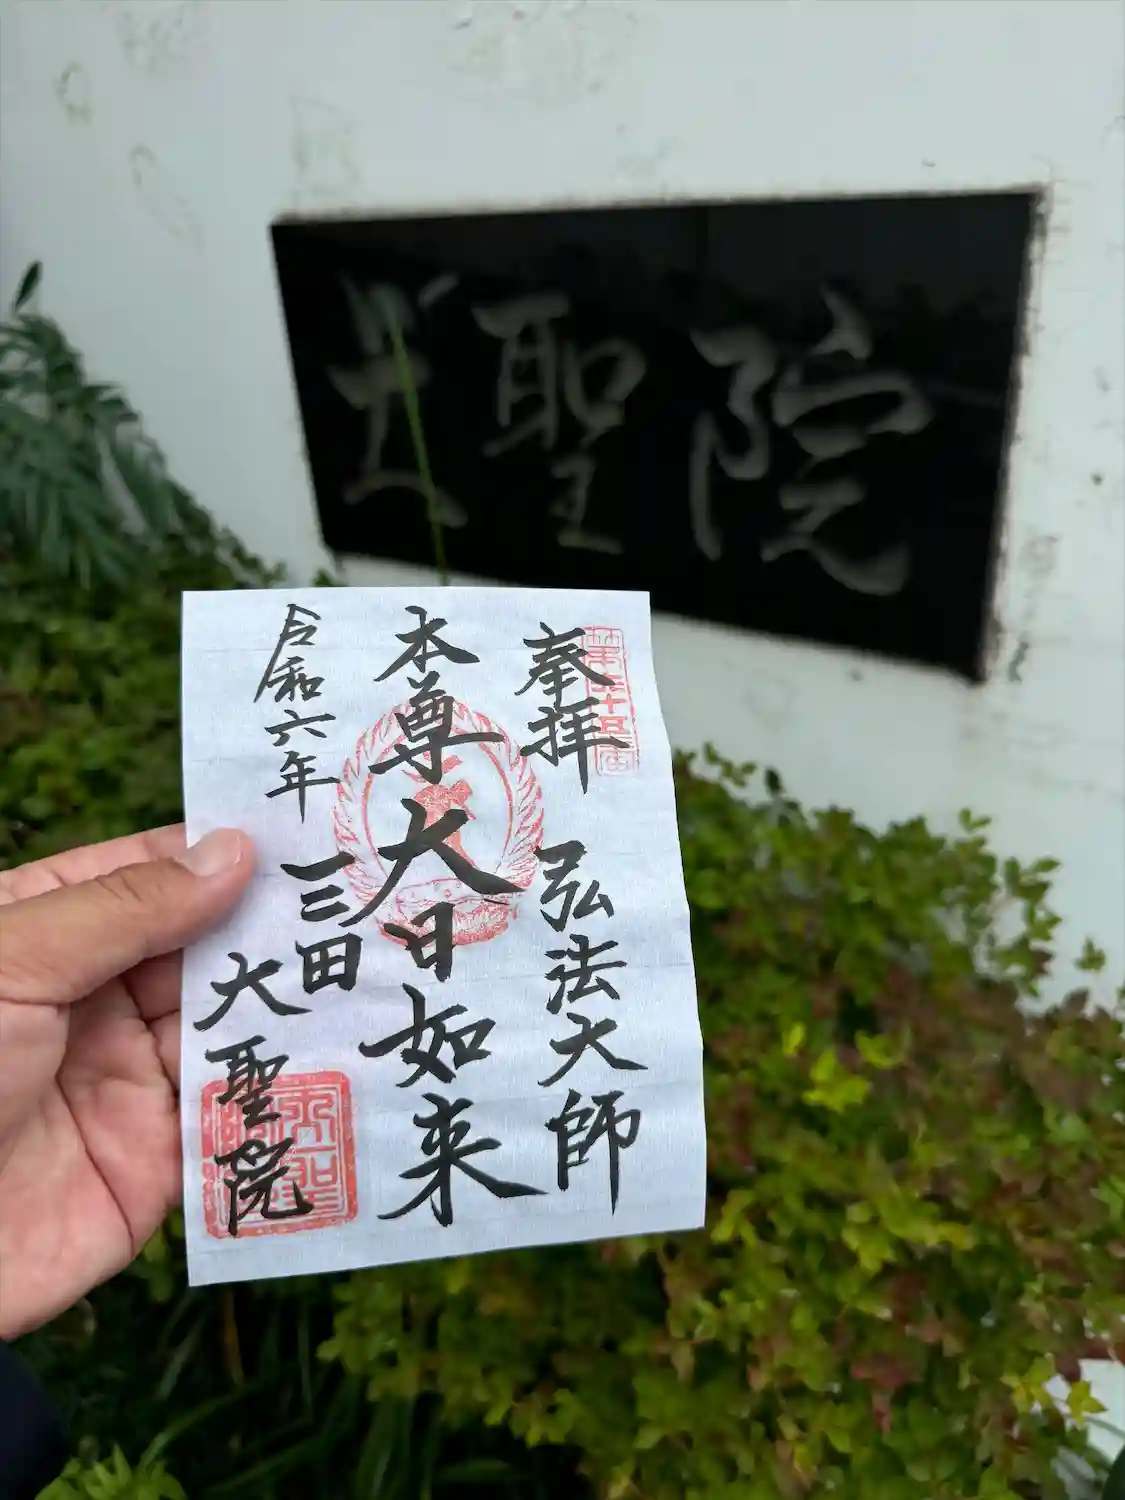 大聖院
第六十五番
奉拝 弘法大師
本尊大日如来
令和六年
三田
大聖院